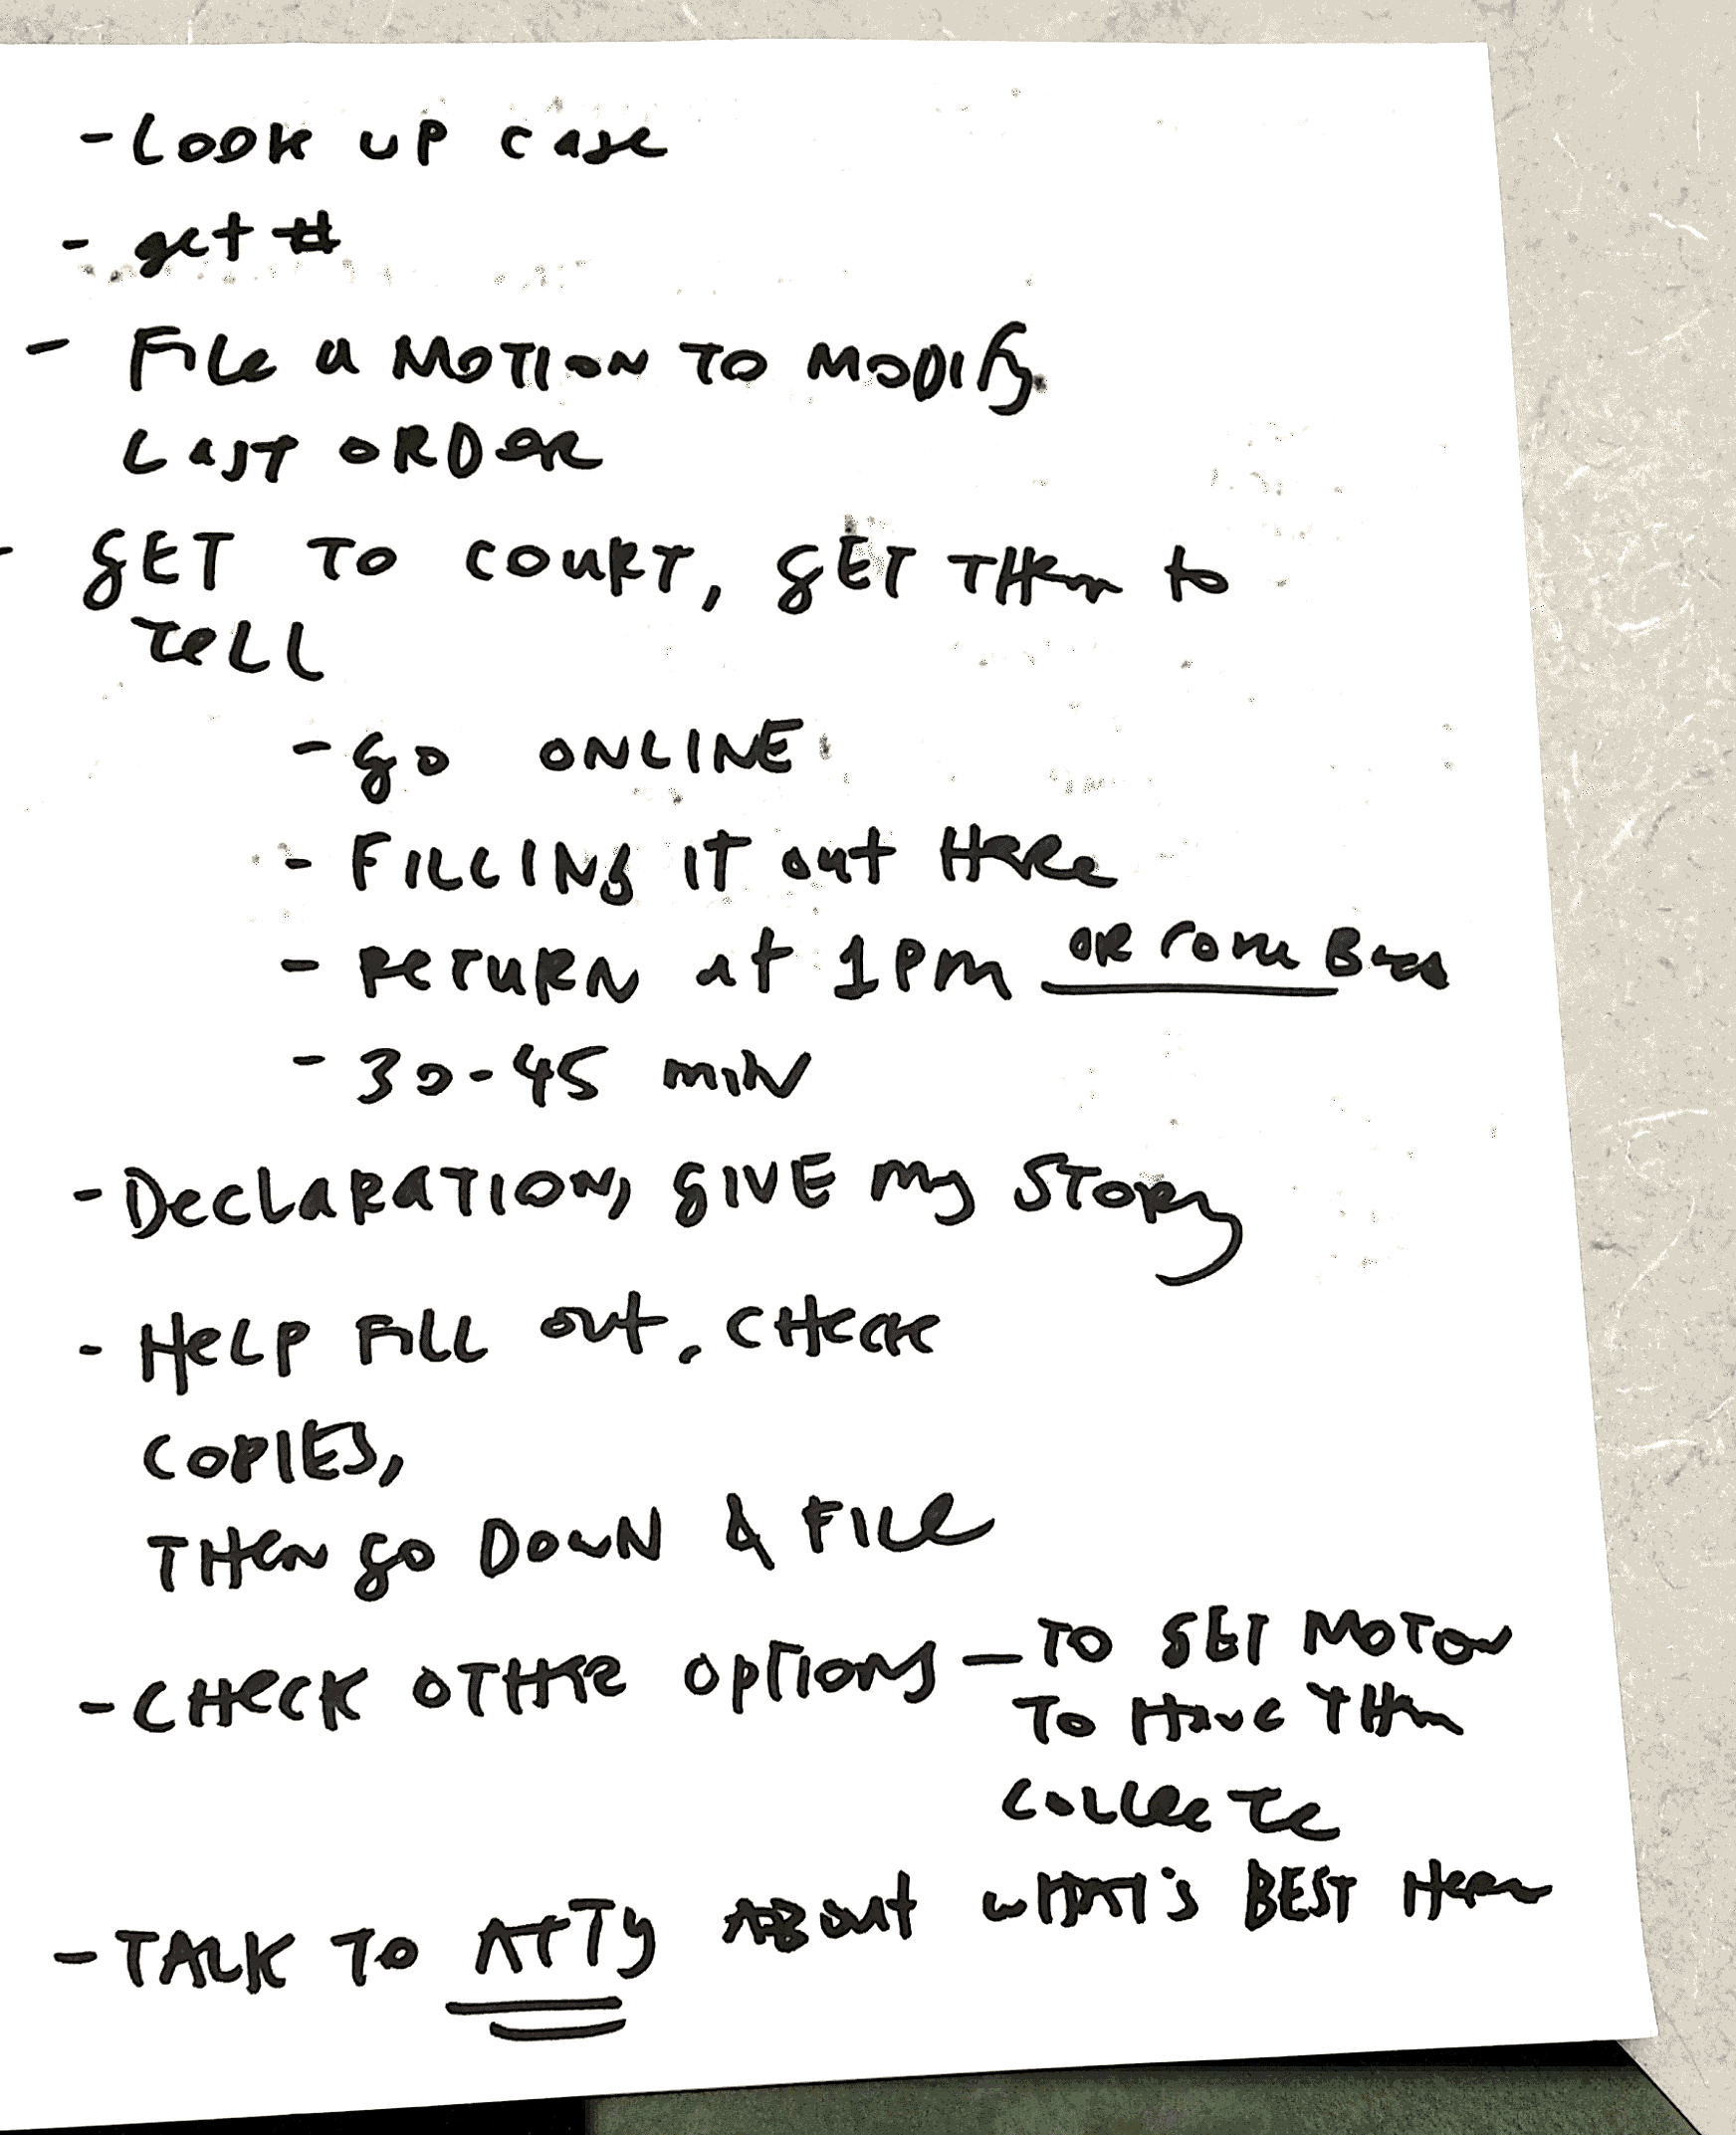 - Look up case
- get #
- File a MOTION TO MODIfy
LAST ORDER
- GET TO COURT, GET THem to
Tell
- go ONLINE
- FILLING IT out Here
- ReTURN at 1PM OR Come Back
- 30-45 min
- DeclaRaTION, GIVE my STORy
- HeLP FILL out, CHeck
COPIES,
THen go DOWN & FILE
- CHeCK OTHer OPTIONS - TO GET MOTON
To Have THem
Collecte
- TALK TO ATTy ABout WHAT's BEST Here